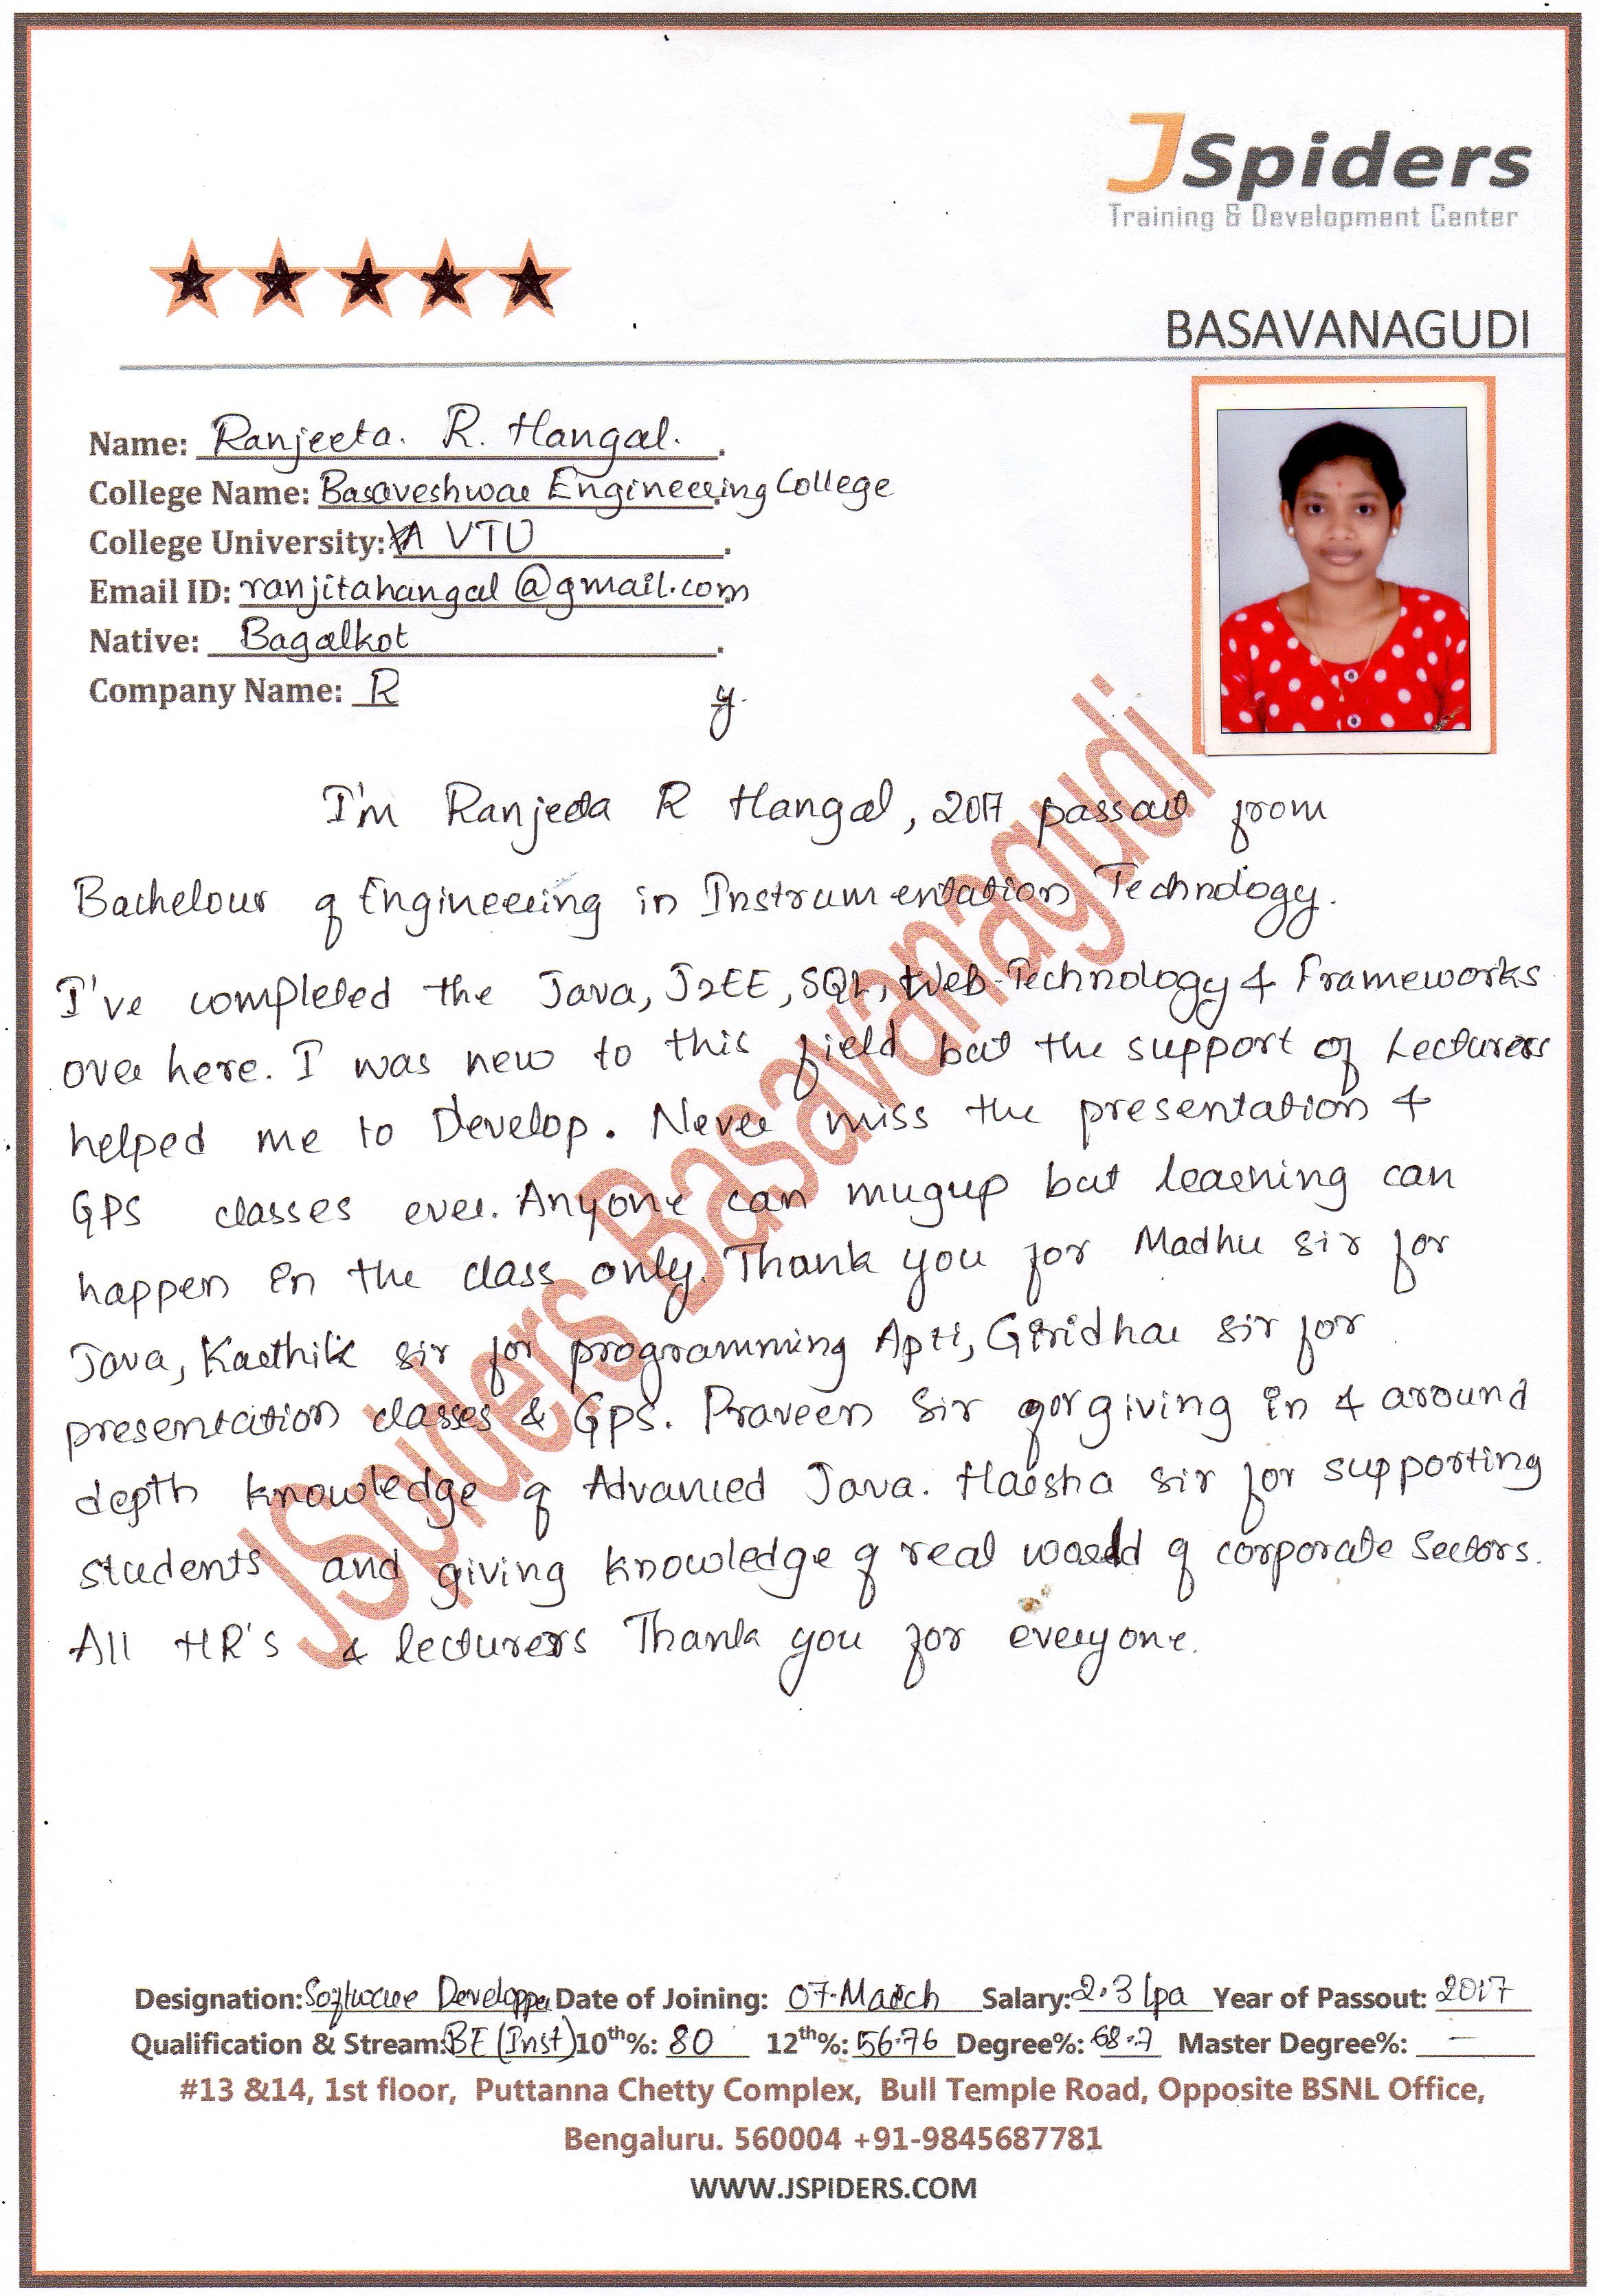 JSpiders
Training & Development Center
BASAVANAGUDI
Name: Ranjeeta. R. Hangal.
College Name: Basaveshwar Engineering College
College University: VTU
Email ID: ranjitahangal@gmail.com
Native: Bagalkot
Company Name: R y.
I'm Ranjeeta R Hangal, 2017 passout from
Bachelour of Engineering in Instrumentation Technology.
I've completed the Java, J2EE, SQL, Web-Technology & Frameworks
over here. I was new to this field but the support of Lecturers
helped me to Develop. Never miss the presentation &
GPS classes ever. Anyone can mugup but learning can
happen in the class only. Thank you for Madhu sir for
Java, Karthik sir for programming Apti, Giridhar sir for
presentation classes & GPS. Praveen Sir for giving in & around
depth knowledge of Advanced Java. Harsha sir for supporting
students and giving knowledge of real world of corporate Sectors.
All HR's & lecturers Thank you for everyone.
JSpiders Basavanagudi
Designation: Software Developper Date of Joining: 07-March Salary: 2.3 lpa Year of Passout: 2017
Qualification & Stream: BE (Inst) 10th%: 80 12th%: 56.76 Degree%: 68.7 Master Degree%: —
#13 &14, 1st floor, Puttanna Chetty Complex, Bull Temple Road, Opposite BSNL Office,
Bengaluru. 560004 +91-9845687781
WWW.JSPIDERS.COM